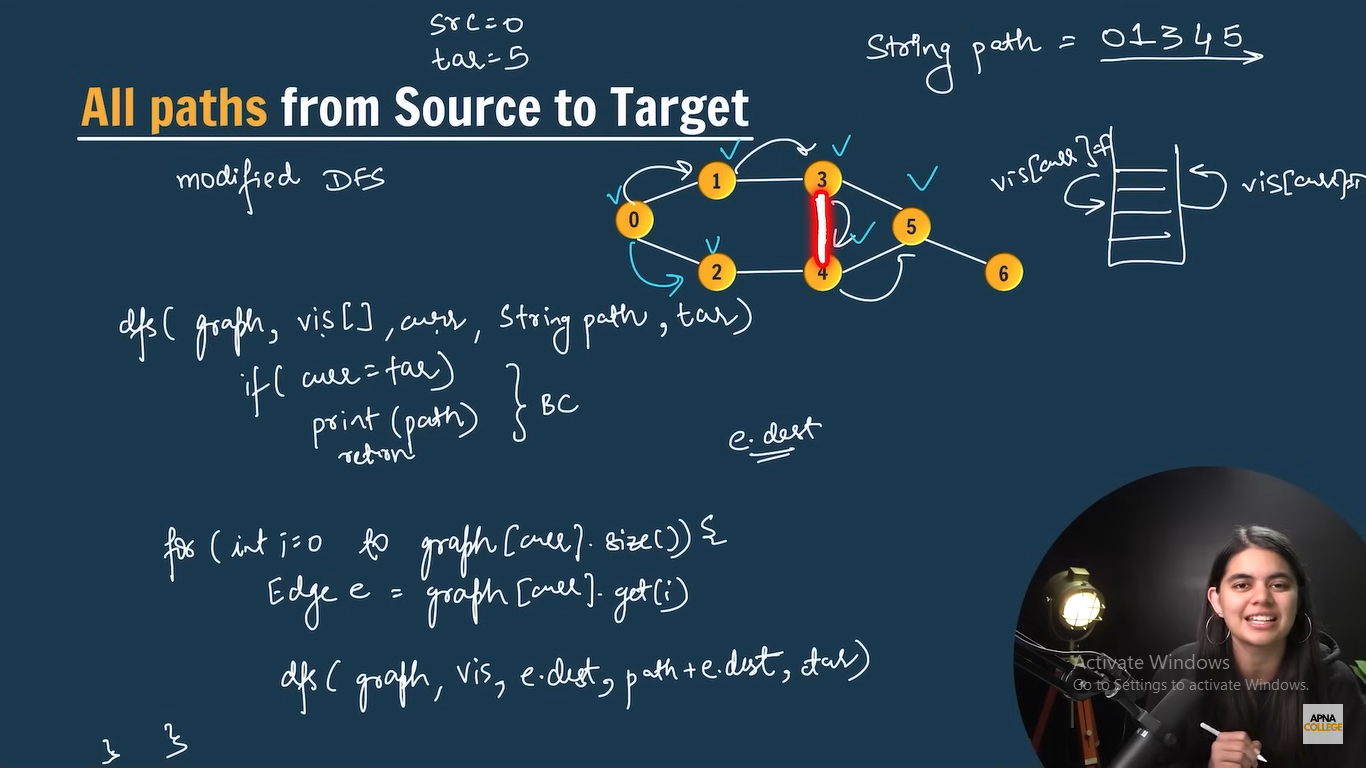 src=0
tar=5
String path = 01345
All paths from Source to Target
modified DFS
vis[curr]=f
vis[curr]=T
1
3
0
5
2
4
6
dfs( graph, vis[], curr, String path, tar)
if( curr=tar)
print (path)
return
} BC
e.dest
for (int i=0 to graph[curr].size()) {
Edge e = graph[curr].get(i)
dfs( graph, vis, e.dest, path+e.dest, tar)
} }
Activate Windows
Go to Settings to activate Windows.
APNA
COLLEGE